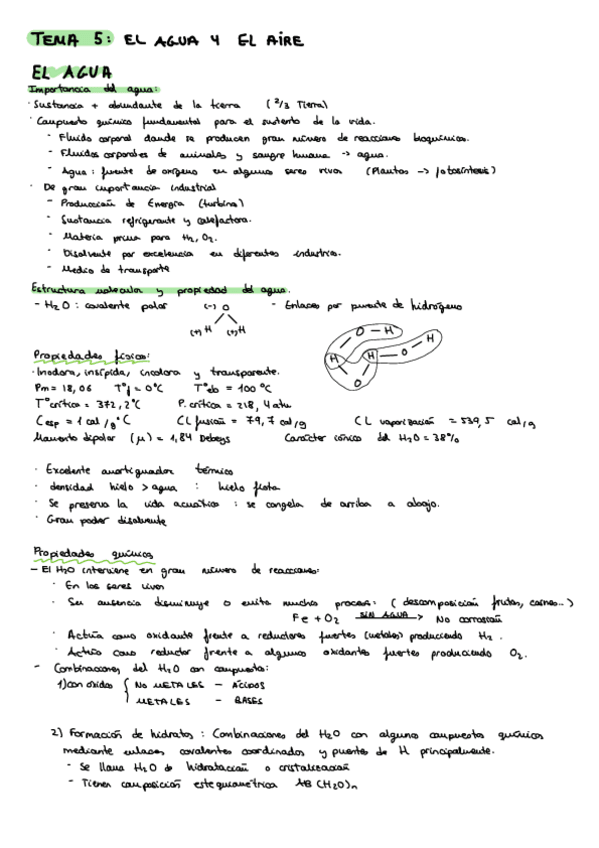 TEMA 5: EL AGUA Y EL AIRE
EL AGUA
Importancia del agua:
· Sustancia + abundante de la tierra (2/3 Tierra)
· Compuesto químico fundamental para el sustento de la vida.
- Fluido corporal donde se producen gran número de reacciones bioquímicas.
- Fluidos corporales de animales y sangre humana -> agua.
- Agua: fuente de oxígeno en algunos seres vivos (Plantas -> fotosíntesis)
· De gran importancia industrial
- Producción de Energía (turbina)
- Sustancia refrigerante y calefactora.
- Materia prima para H2, O2.
- Disolvente por excelencia en diferentes industrias.
- Medio de transporte
Estructura molecular y propiedad del agua.
- H2O: covalente polar (-) O - Enlaces por puente de hidrógeno
(+) H (+) H
O - H
H H - O - H
O
Propiedades físicas:
· Inodora, insípida, incolora y transparente.
Pm = 18,06 Tªf = 0ºC Tªeb = 100ºC
Tªcrítica = 372,2ºC P. crítica = 218,4 atm
Cesp = 1 cal/gºC CL fusión = 79,7 cal/g CL vaporización = 539,5 cal/g
Momento dipolar (μ) = 1,84 Debeys Carácter iónico del H2O = 38%
· Excelente amortiguador térmico
· densidad hielo > agua : hielo flota
· Se preserva la vida acuática : se congela de arriba a abajo.
· Gran poder disolvente
Propiedades químicas
- El H2O interviene en gran número de reacciones:
· En los seres vivos
· Su ausencia disminuye o evita muchos procesos: (descomposición frutas, carnes...)
Fe + O2 SIN AGUA -> No corrosión
· Actúa como oxidante frente a reductores fuertes (metales) produciendo H2.
· Actúa como reductor frente a algunos oxidantes fuertes produciendo O2.
- Combinaciones del H2O con compuestos:
1) con óxidos { NO METALES - ÁCIDOS
METALES - BASES
2) Formación de hidratos : Combinaciones del H2O con algunos compuestos químicos
mediante enlaces covalentes coordinados y puentes de H principalmente.
- Se llama H2O de hidratación o cristalización
- Tienen composición estequiométrica AB(H2O)n